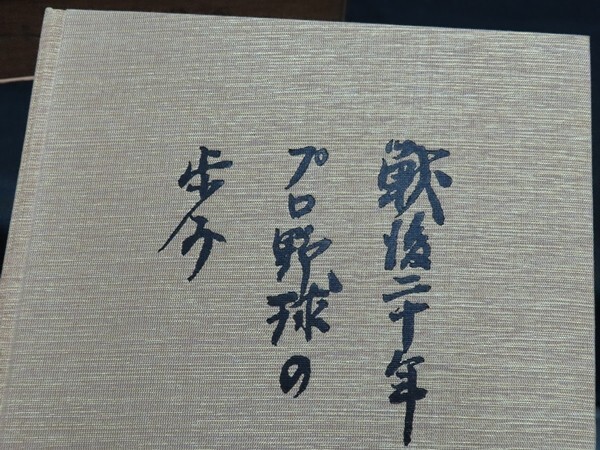 戦後二十年
プロ野球の
歩み